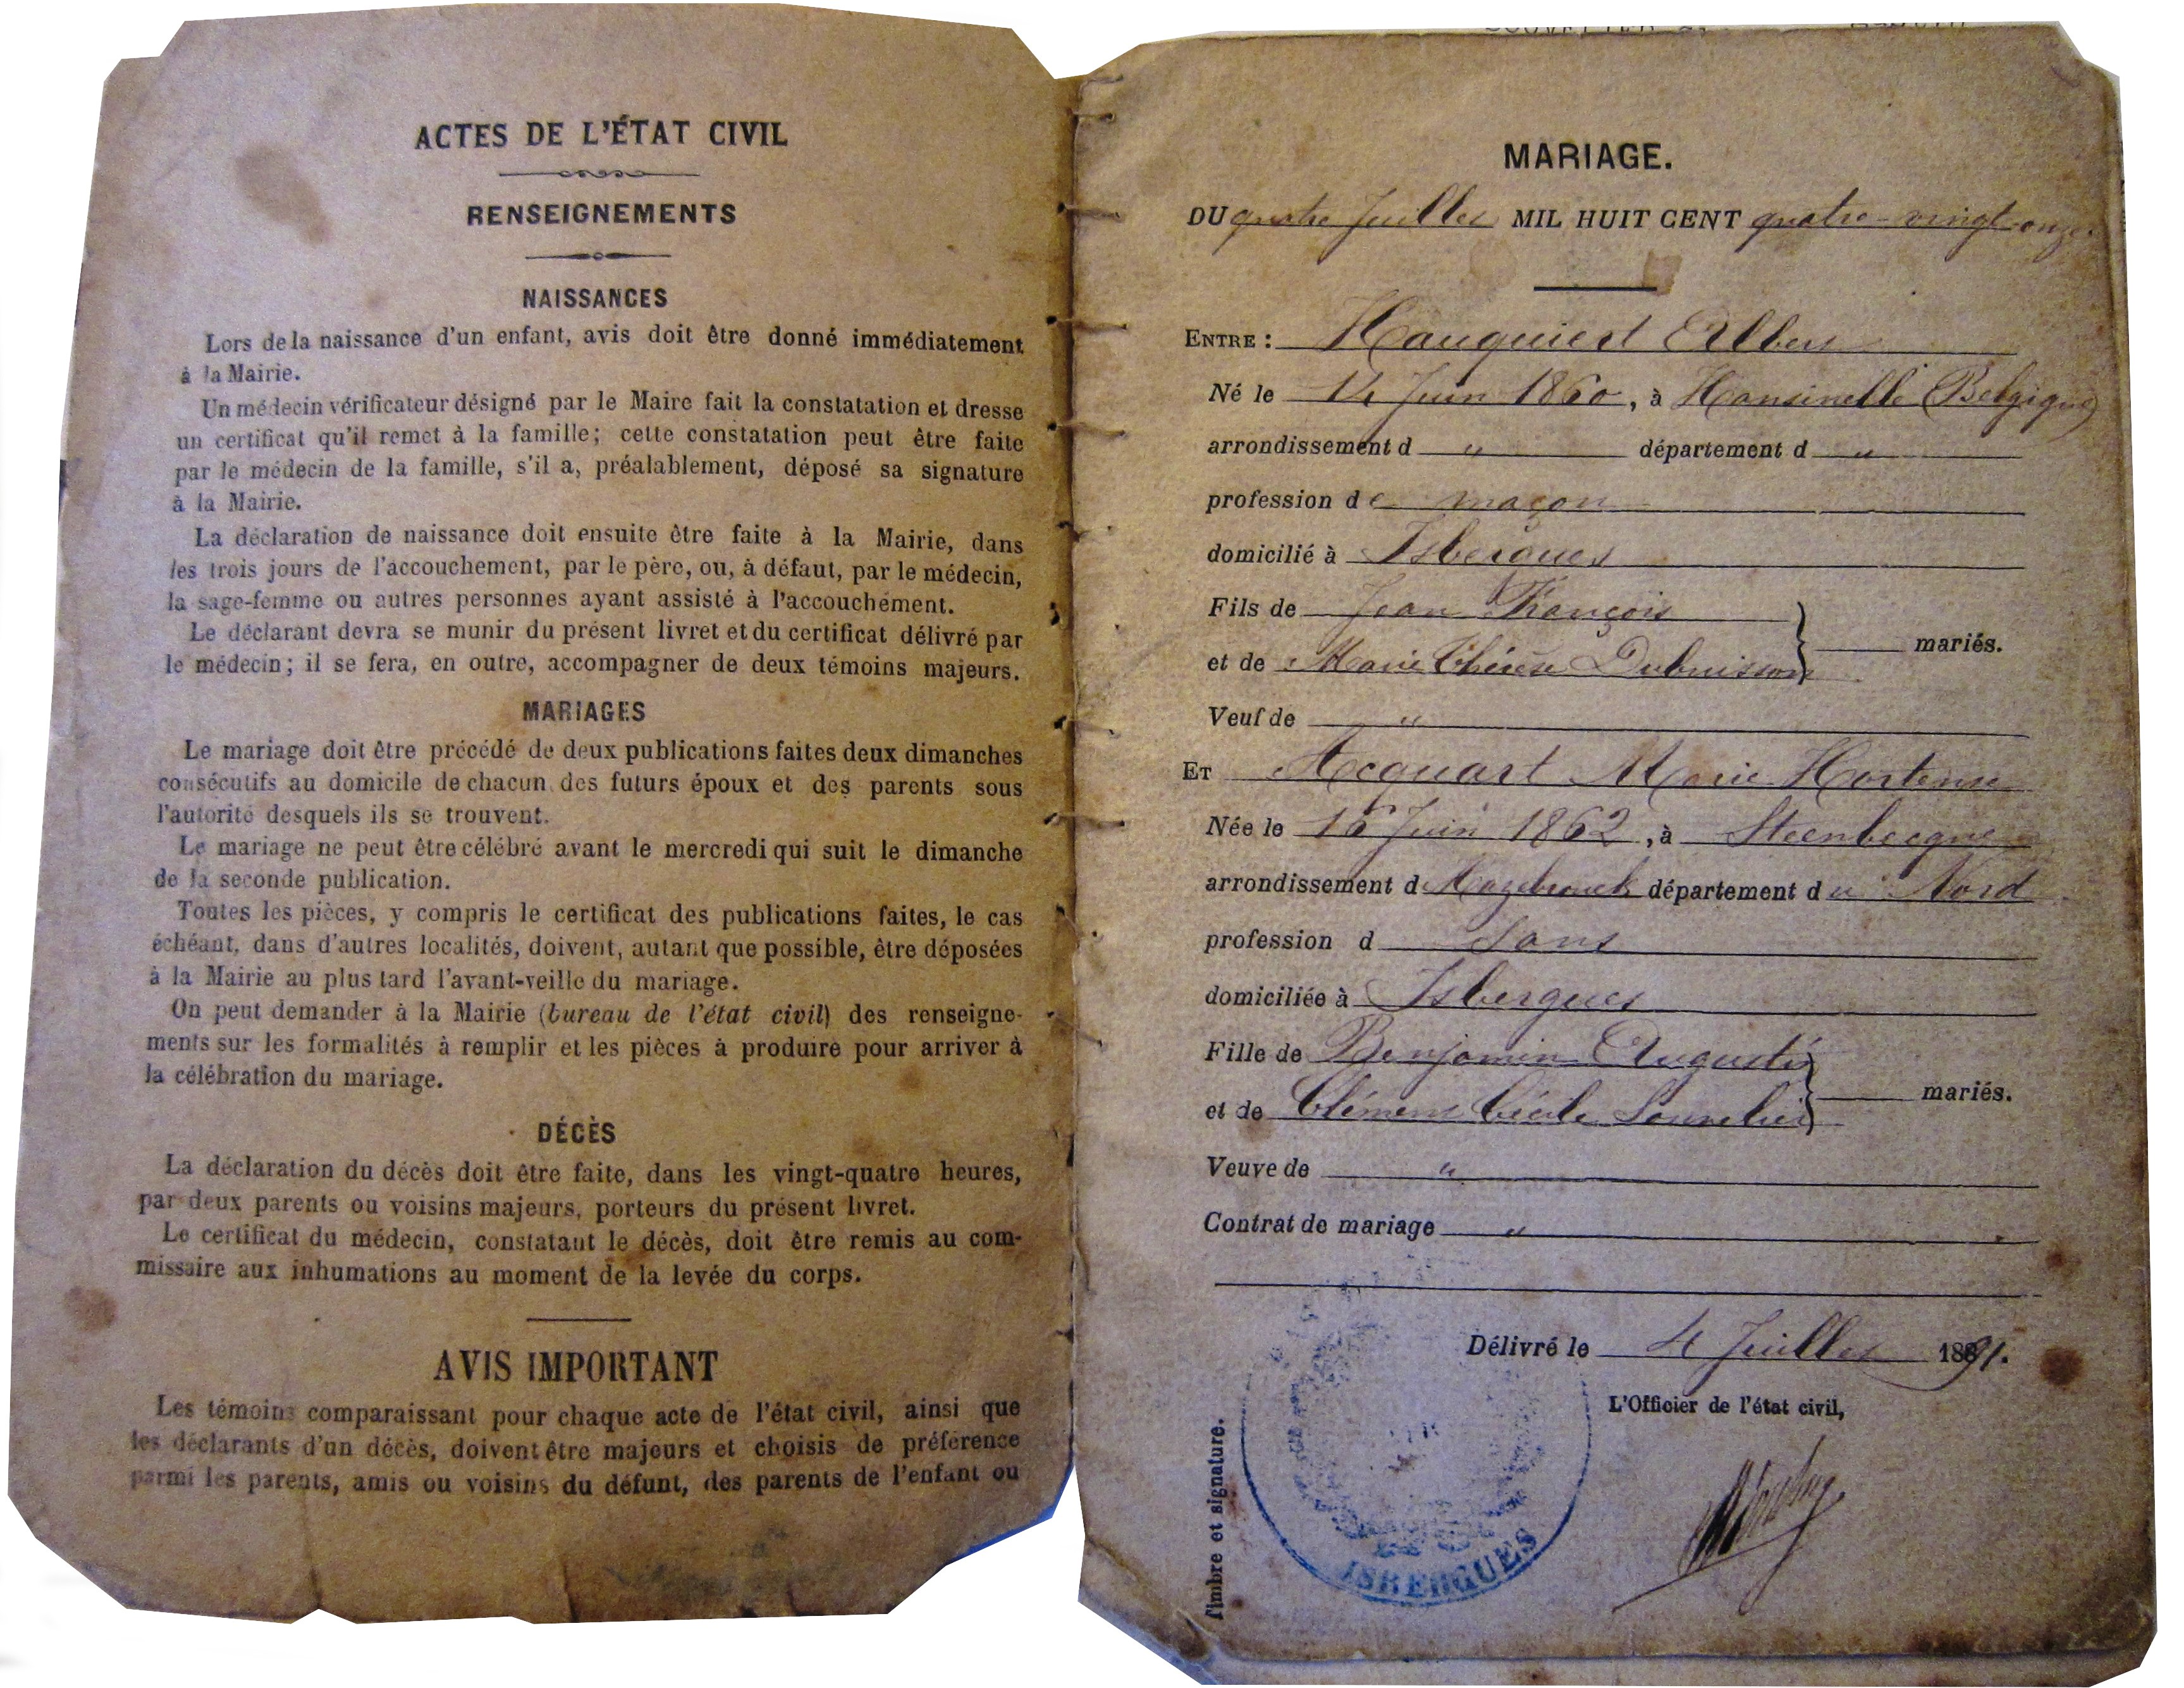 ACTES DE L'ÉTAT CIVIL
RENSEIGNEMENTS
NAISSANCES
Lors de la naissance d'un enfant, avis doit être donné immédiatement
à la Mairie.
Un médecin vérificateur désigné par le Maire fait la constatation et dresse
un certificat qu'il remet à la famille; cette constatation peut être faite
par le médecin de la famille, s'il a, préalablement, déposé sa signature
à la Mairie.
La déclaration de naissance doit ensuite être faite à la Mairie, dans
les trois jours de l'accouchement, par le père, ou, à défaut, par le médecin,
la sage-femme ou autres personnes ayant assisté à l'accouchement.
Le déclarant devra se munir du présent livret et du certificat délivré par
le médecin; il se fera, en outre, accompagner de deux témoins majeurs.
MARIAGES
Le mariage doit être précédé de deux publications faites deux dimanches
consécutifs au domicile de chacun des futurs époux et des parents sous
l'autorité desquels ils se trouvent.
Le mariage ne peut être célébré avant le mercredi qui suit le dimanche
de la seconde publication.
Toutes les pièces, y compris le certificat des publications faites, le cas
échéant, dans d'autres localités, doivent, autant que possible, être déposées
à la Mairie au plus tard l'avant-veille du mariage.
On peut demander à la Mairie (bureau de l'état civil) des renseigne-
ments sur les formalités à remplir et les pièces à produire pour arriver à
la célébration du mariage.
DÉCÈS
La déclaration du décès doit être faite, dans les vingt-quatre heures,
par deux parents ou voisins majeurs, porteurs du présent livret.
Le certificat du médecin, constatant le décès, doit être remis au com-
missaire aux inhumations au moment de la levée du corps.
AVIS IMPORTANT
Les témoins comparaissant pour chaque acte de l'état civil, ainsi que
les déclarants d'un décès, doivent être majeurs et choisis de préférence
parmi les parents, amis ou voisins du défunt, des parents de l'enfant ou
MARIAGE.
DU quatre Juillet MIL HUIT CENT quatre-vingt-onze.
ENTRE : Hauquiert Albert
Né le 14 Juin 1860, à Hansinelle (Belgique)
arrondissement d " département d "
profession de maçon
domicilié à Isbergues
Fils de Jean François
et de Marie Thérèse Dubuisson } mariés.
Veuf de "
ET Hequart Marie Hortense
Née le 16 Juin 1862, à Steenbecque
arrondissement d'Hazebrouck département du Nord
profession d Sans
domiciliée à Isbergues
Fille de Benjamin Augustin
et de Clémence Cécile } mariés.
Veuve de "
Contrat de mariage "
Délivré le 4 Juillet 1891.
L'Officier de l'état civil,
Timbre et signature.
ISBERGUES